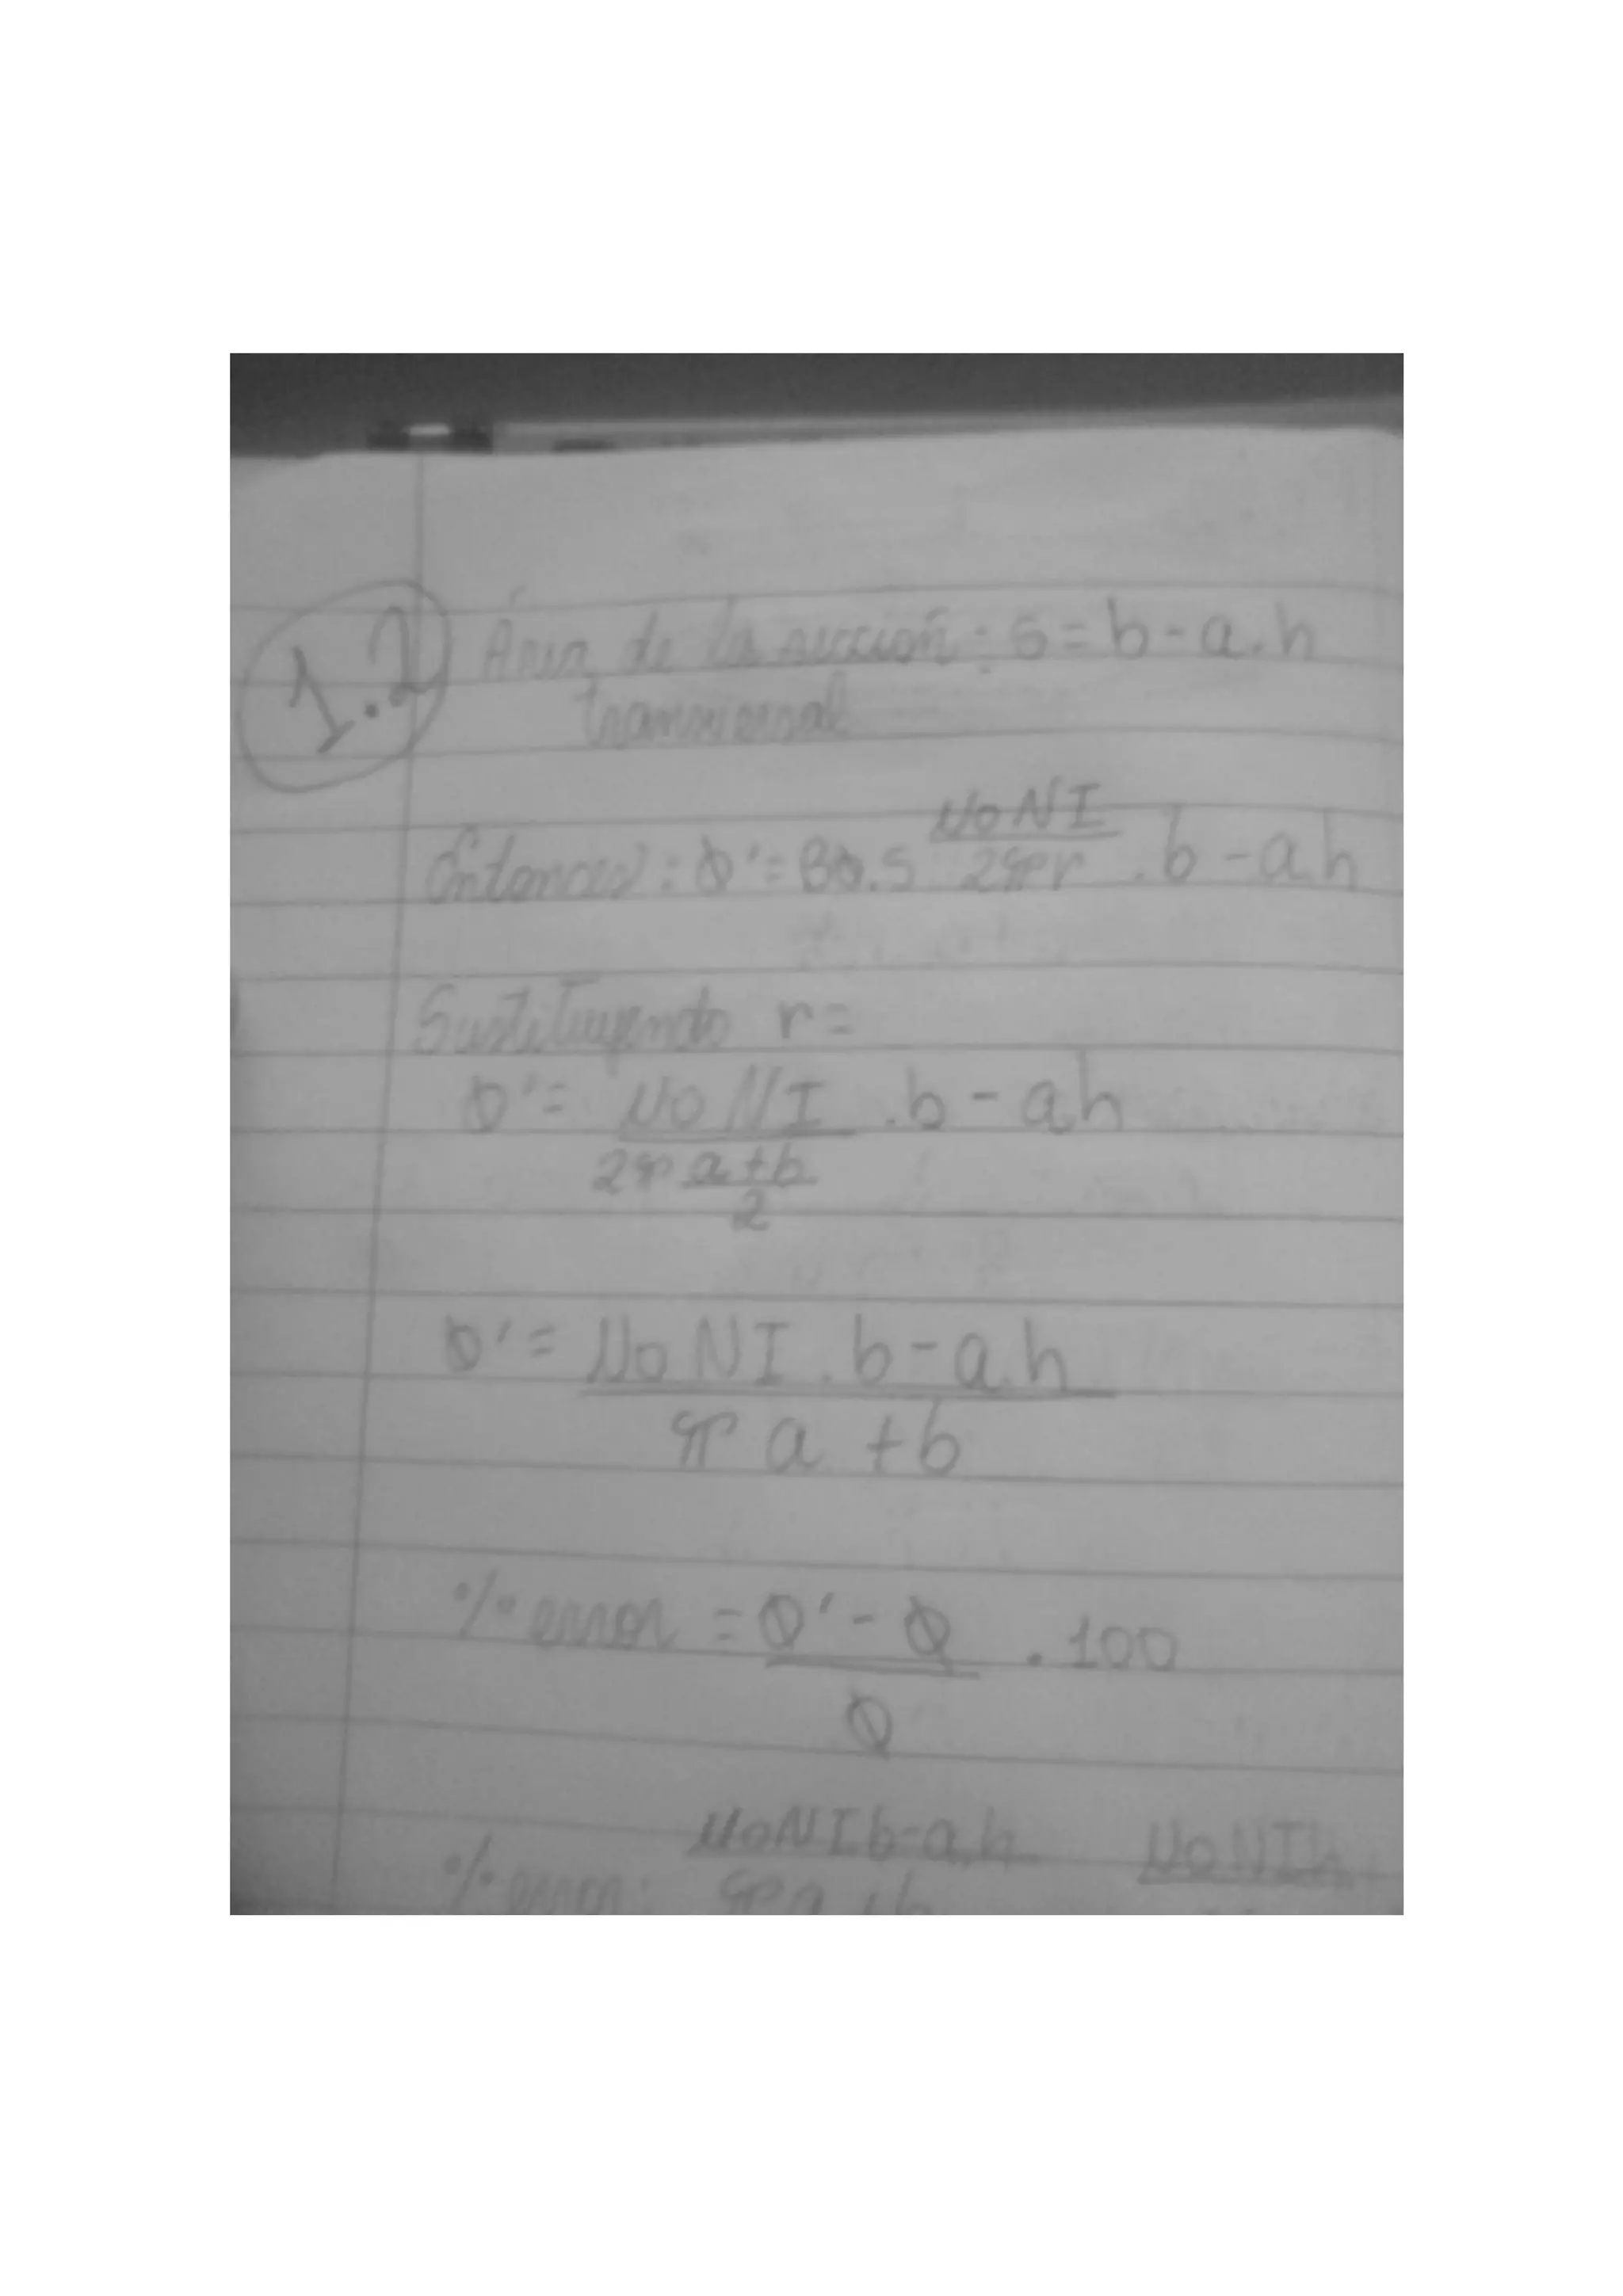 1.2 Área de la sección: S = b - a . h
transversal
Entonces: Φ' = BΦ . S μoNI / 2πr . b - a h
Sustetuyendo r =
Φ' = μo NI / 2π a + b / 2 . b - a h
Φ' = μo NI . b - a . h / π a + b
% error = Φ' - Φ / Φ . 100
% error: μoNI b - a . h / π a + b μoNIh